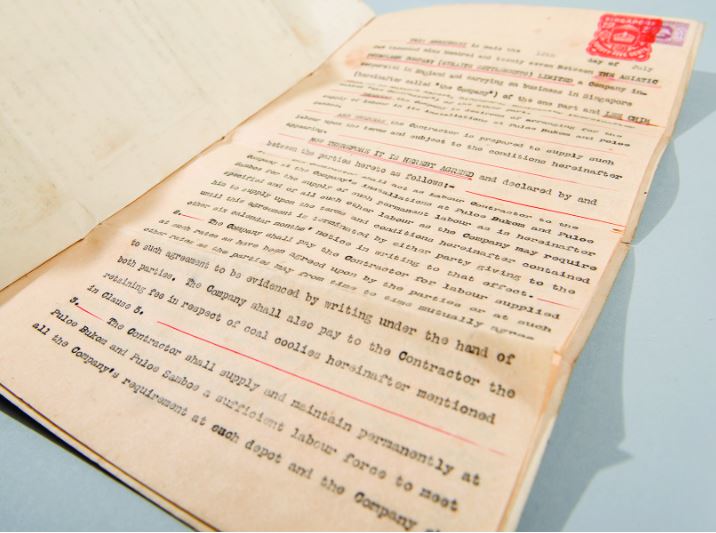 THIS AGREEMENT is made the 12th day of July
One thousand nine hundred and twenty seven Between THE ASIATIC
PETROLEUM COMPANY (STRAITS SETTLEMENTS) LIMITED a Company in-
corporated in England and carrying on business in Singapore
(hereinafter called "the Company") of the one part and LEE CHIM
supply of labour in its installations at Puloe Bukom and Puloe
Samboe.
AND WHEREAS the Contractor is prepared to supply such
labour upon the terms and subject to the conditions hereinafter
appearing.
NOW THEREFORE IT IS HEREBY AGREED and declared by and
between the parties hereto as follows:-
Contractor shall act as Labour Contractor to the
Company at the Company's installations at Puloe Bukom and Puloe
Samboe for the supply of such permanent labour as is hereinafter
specified and or all such other labour as the Company may require
him to supply upon the terms and conditions hereinafter contained
until this agreement is terminated by either party giving to the
other six calendar months' notice in writing to that effect.
2. The Company shall pay the Contractor for labour supplied
at such rates as have been agreed upon by the parties or at such
other rates as the parties may from time to time mutually agree
to such agreement to be evidenced by writing under the hand of
both parties. The Company shall also pay to the Contractor the
retaining fee in respect of coal coolies hereinafter mentioned
in Clause 5.
3. The Contractor shall supply and maintain permanently at
Puloe Bukom and Puloe Samboe a sufficient labour force to meet
all the Company's requirement at each depot and the Company